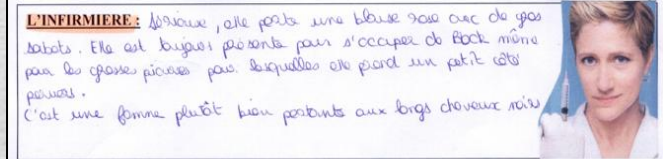 L'INFIRMIERE : Sérieuse, elle porte une blouse rose avec de gros
sabots. Elle est toujours présente pour s'occuper de Bock même
pour les grosses piqures pour lesquelles elle prend un petit côté
pervers.
C'est une femme plutôt bien portante aux longs cheveux noirs